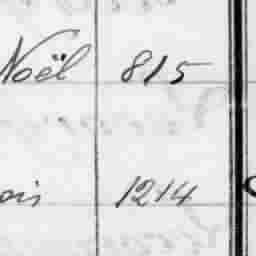 Noël 815
ois 1214